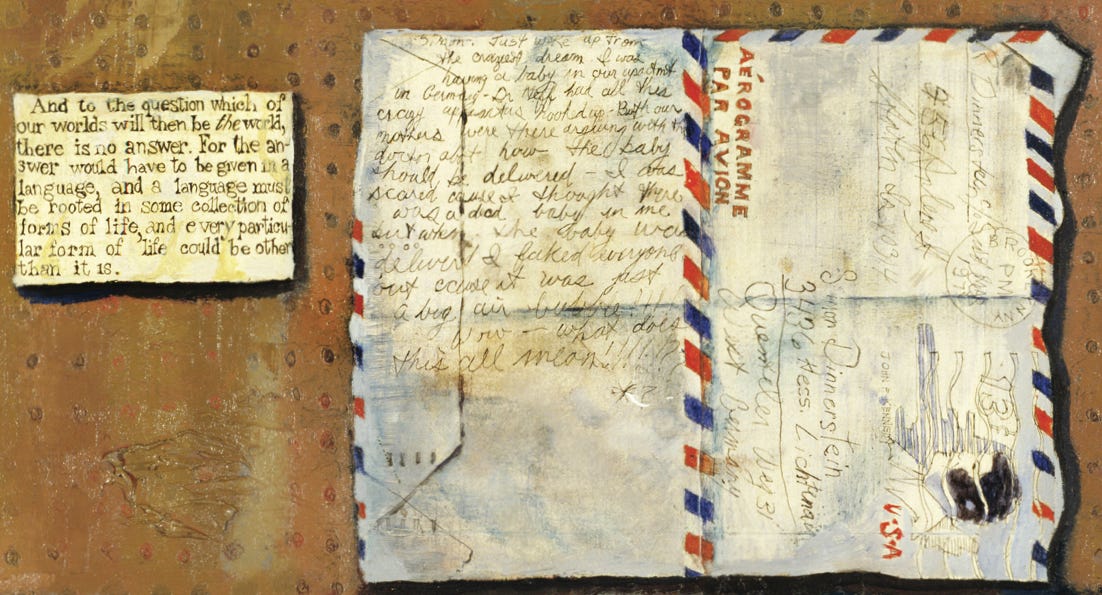 And to the question which of
our worlds will then be the world,
there is no answer. For the an-
swer would have to be given in a
language, and a language must
be rooted in some collection of
forms of life, and every particu-
lar form of life could be other
than it is.
Simon. Just woke up from
the craziest dream I was
having a baby in our apartmt
in Germany - Dr Neff had all this
crazy apparatus hooked up - Both our
mothers were there arguing with the
doctor abt how the baby
should be delivered - I was
scared cause I thought there
was a dead baby in me
but when the baby was
deliverd I faked everyone
out cause it was just
a big air bubble!!!
Wow - what does
this all mean!!!!!?
AÉROGRAMME
PAR AVION
R Dinnerstein, c/o
Simon Dinnerstein
3436 Hess. Lichtenau
Quenteler Weg 31
West Germany
JOHN F. KENNEDY
U·S·A
13¢